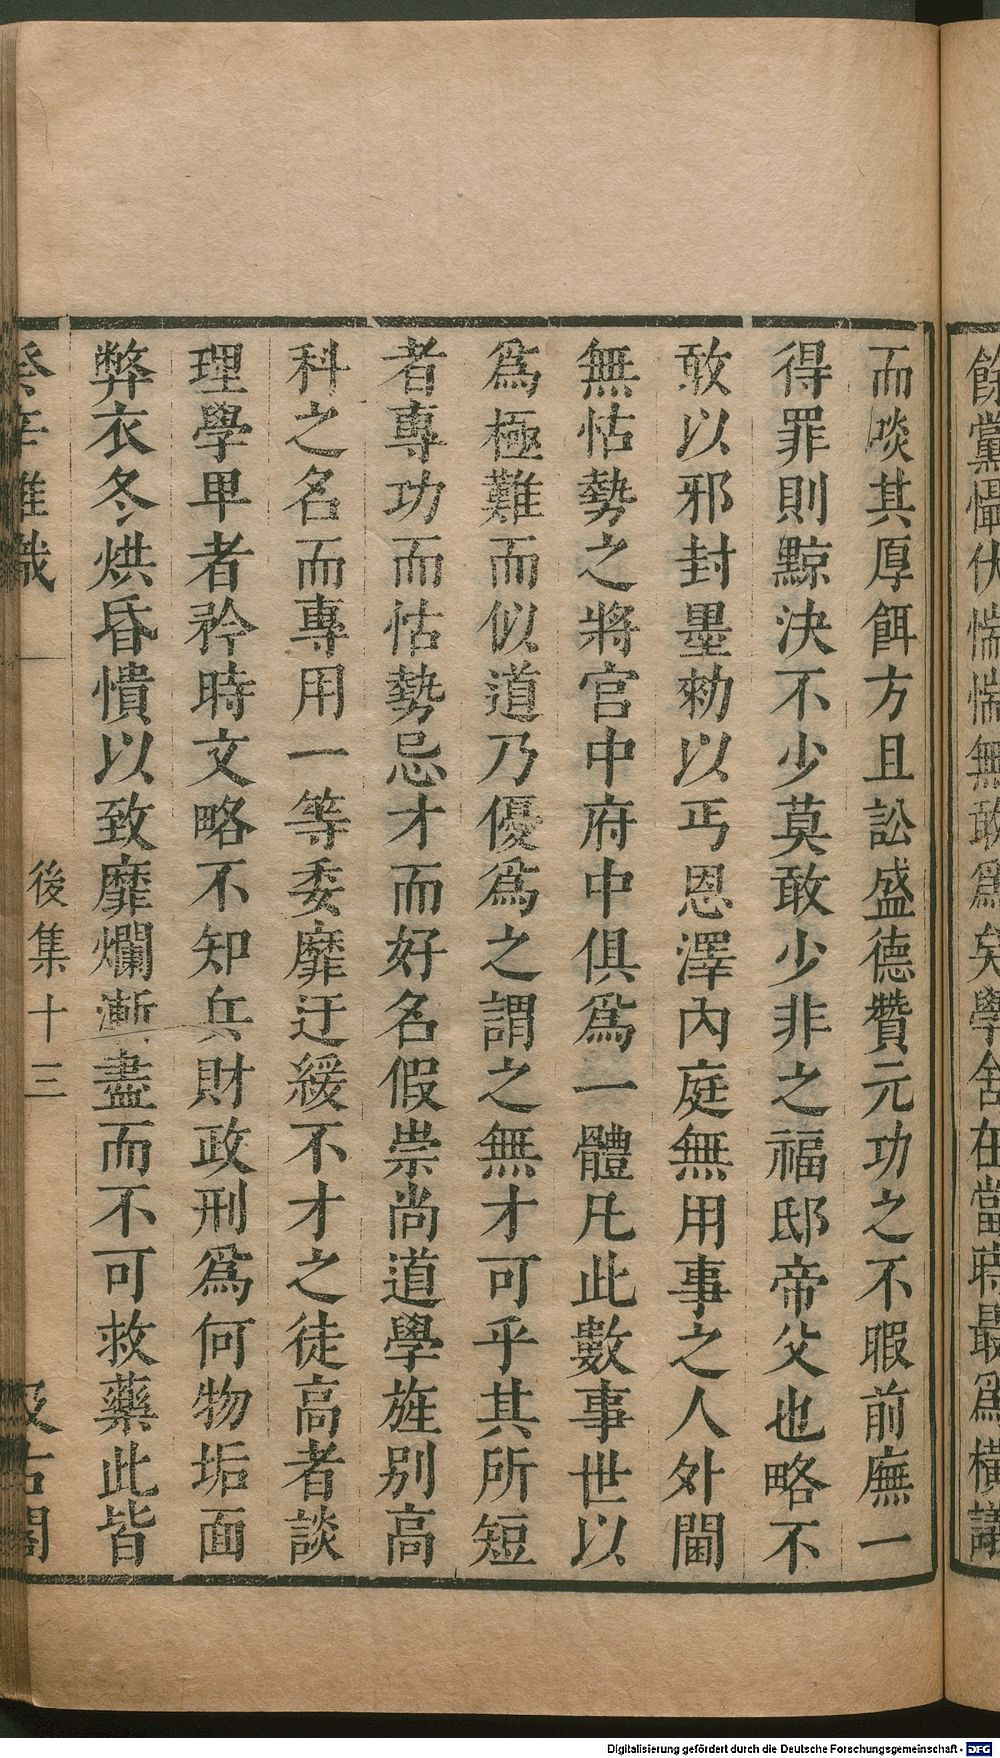 餘黨懾伏惴惴無敢爲矣學舍在當時最爲橫議
而啖其厚餌方且訟盛德贊元功之不暇前廡一
得罪則黥決不少莫敢少非之福邸帝父也略不
敢以邪封墨勑以丐恩澤內庭無用事之人外閫
無怙勢之將官中府中俱爲一體凡此數事世以
爲極難而似道乃優爲之謂之無才可乎其所短
者專功而怙勢忌才而好名假崇尚道學旌别高
科之名而專用一等委靡迂緩不才之徒高者談
理學卑者矜時文略不知兵財政刑爲何物垢面
弊衣冬烘昏憒以致靡爛漸盡而不可救藥此皆
癸辛雜識
後集十三
汲古閣
Digitalisierung gefördert durch die Deutsche Forschungsgemeinschaft - DFG